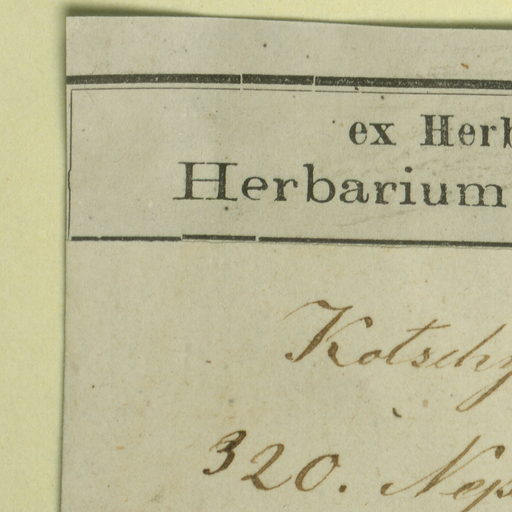 ex Herb
Herbarium
Kotschy
320. Nep